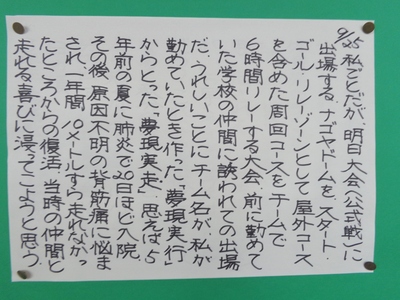 9/25 私ごとだが、明日大会(公式戦)に
出場する。ナゴヤドームを、スタート・
ゴール・リレーゾーンとして、屋外コース
を含めた周回コースをチームで
6時間リレーする大会。前に勤めて
いた学校の仲間に誘われての出場
だ。うれしいことにチーム名が、私が
勤めていたとき作った「夢現実行」
からとった「夢現実走」。思えば、5
年前の夏に肺炎で20日ほど入院
その後、原因不明の背筋痛に悩ま
され、一年間10メートルすら走れなかっ
たところからの復活。当時の仲間と
走れる喜びに浸ってこようと思う。